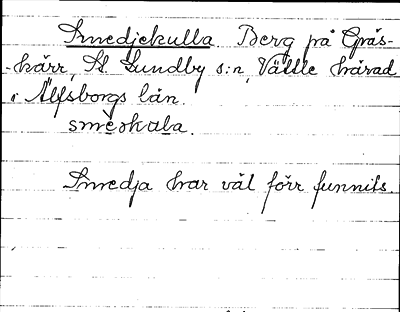 Smedjekulla. Berg på Grås-
-kärr, St. Lundby s:n, Vättle härad
i Älfsborgs län.
smèskula.
Smedja har väl förr funnits.